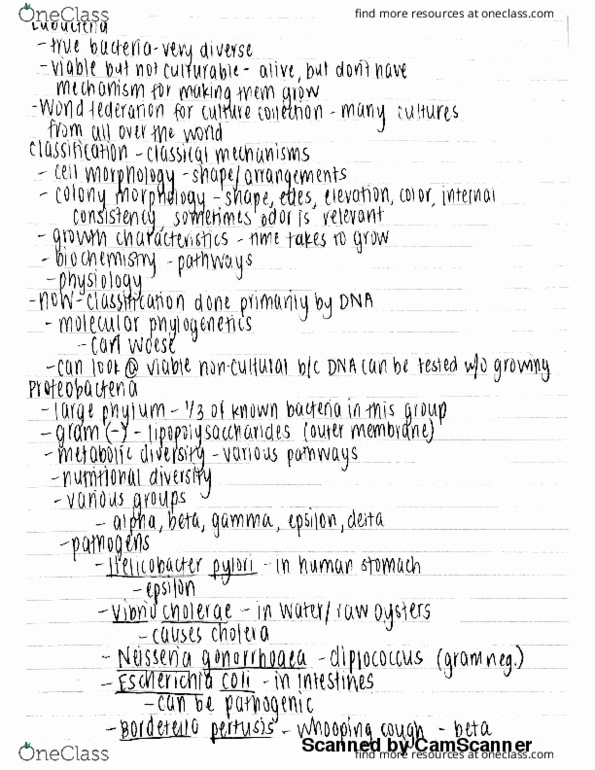 OneClass find more resources at oneclass.com
Eubacteria
- true bacteria - very diverse
- viable but not culturable - alive, but don't have
mechanism for making them grow
- World federation for culture collection - many cultures
from all over the world
Classification - classical mechanisms
- cell morphology - shape/arrangements
- colony morphology - shape, edes, elevation, color, internal
consistency, sometimes odor is relevant
- growth characteristics - time takes to grow
- biochemistry - pathways
- physiology
- now - classification done primarily by DNA
- molecular phylogenetics
- Carl Woese
- can look @ viable non-cultural b/c DNA can be tested w/o growing
Proteobacteria
- large phylum - 1/3 of known bacteria in this group
- gram (-) - lipopolysaccharides (outer membrane)
- metabolic diversity - various pathways
- nutritional diversity
- various groups
- alpha, beta, gamma, epsilon, delta
- pathogens
- Helicobacter pylori - in human stomach
- epsilon
- Vibrio cholerae - in water/raw oysters
- causes cholera
- Neisseria gonorrhoaea - diplococcus (gram neg.)
- Escherichia coli - in intestines
- can be pathogenic
- Bordetella pertusis - whooping cough - beta
Scanned by CamScanner
OneClass find more resources at oneclass.com